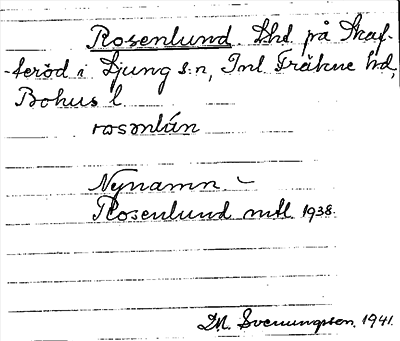 Rosenlund. Lhd. på Skaf-
-teröd i Ljung s:n, Inl. Fräkne hd,
Bohus l.
rosənlún
Nynamn. -
Rosenlund mtl 1938.
D.A. Svenungsson. 1941.